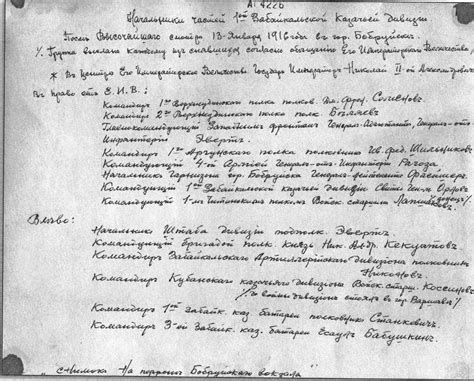 А 4226
Начальники частей 1ой Забайкальской Казачьей Дивизии
После Высочайшего смотра 13 Января 1916 года в гор. Бобруйскѣ.
Группа выслана каждому из снявшихся согласно обещанию Его Императорского Величества,
* Въ центрѣ Его Императорское Величество Государь Императоръ Николай II-ой Александровичъ
Въ право отъ Е.И.В.:
Командиръ 1го Верхнеудинскаго полка полков.
Командиръ 2го Верхнеудинскаго полка полк.
Главнокомандующий Западнымъ фронтомъ Генералъ-Адъютантъ, Генералъ-отъ
Инфантеріи Эвертъ.
Командиръ 1го Аргунскаго полка полковникъ Ив. Фед. Шильниковъ
Командующий 4-ой Арміей Генералъ-отъ-Инфантеріи Рагоза
Начальникъ Гарнизона гор. Бобруйска Генералъ-лейтенантъ
Командующий 1ой Забайкальской казачьей Дивизіи Свиты Генер. Орловъ
Командиръ 1го Читинскаго полка Войск. старшина
Влѣво:
Начальникъ Штаба Дивизіи подполк. Эвертъ.
Командующий бригадой полк. Князь Ник. Кекуатовъ
Командиръ Забайкальскаго Артиллерійскаго Дивизіона полковникъ
Никоновъ
Командиръ Кубанскаго казачьяго дивизіона Войск. старш. Коссиновъ
/До войны дивизіонъ стоялъ въ гор. Варшавѣ/
Командиръ 1ой забайк. каз. батареи полковникъ Станкевичъ.
Командиръ 3-ой Забайк. каз. батареи Есаулъ Бабушкинъ.
снимокъ на перронѣ Бобруйскаго вокзала"